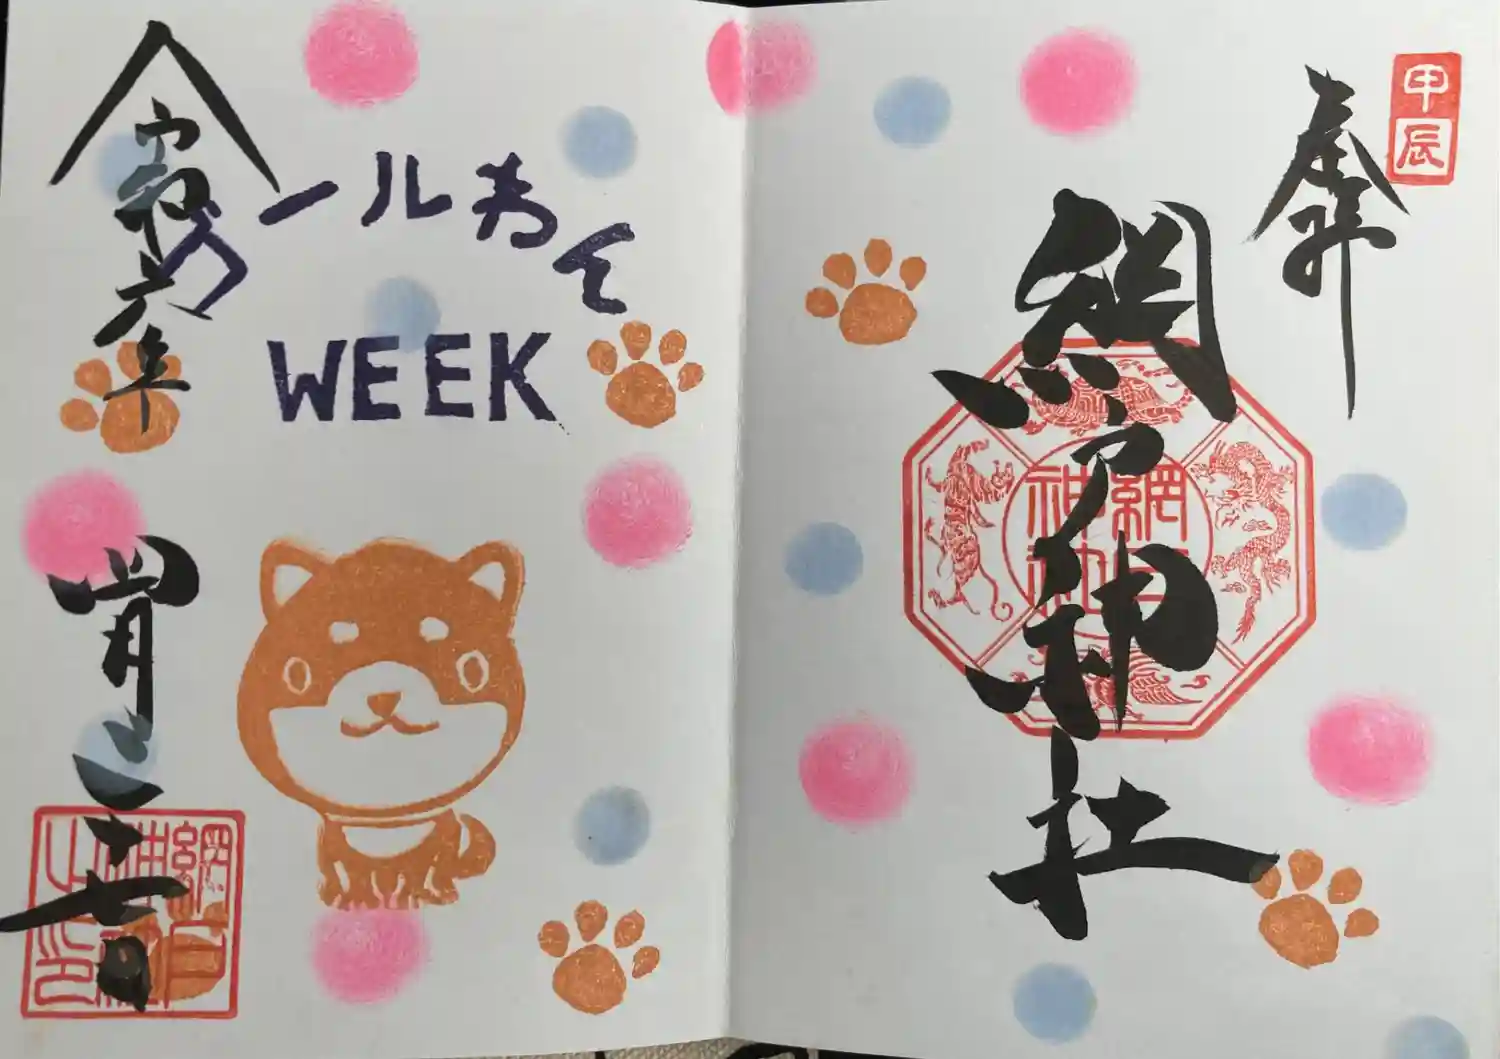 甲辰
奉拝
網戸神社
網戸神社
ゴールわん
WEEK
令和六年
四月二十七日
網戸神社之印